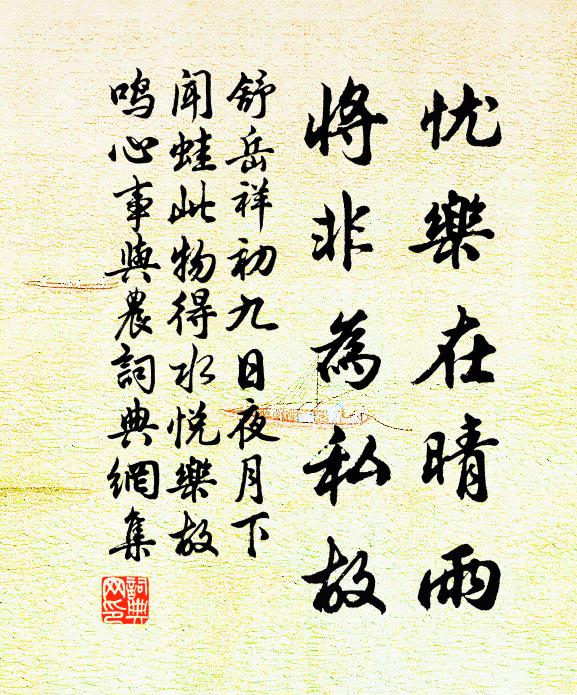 忧樂在晴雨
將非為私故
舒岳祥初九日夜月下
闻蛙此物得水悦樂故
鸣心事與農詞典網集
詞典
网印